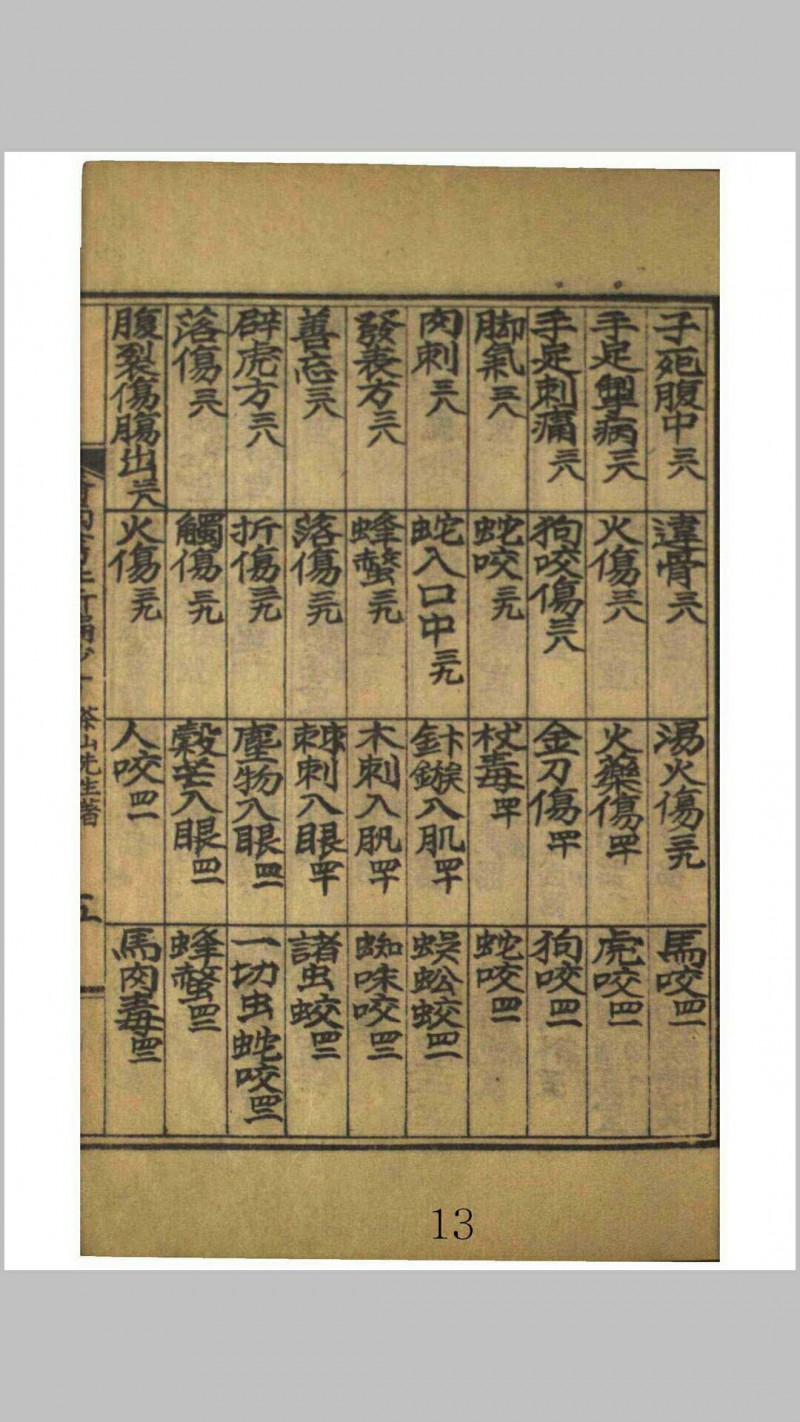 子死腹中 三八
手足 病 三八
手足刺痛 三八
脚氣 三八
肉刺 三八
發表方 三八
善忘 三八
辟虎方 三八
落傷 三八
腹裂傷腸出 三八
違骨 三八
火傷 三八
狗咬傷 三八
蛇咬 三九
蛇入口中 三九
蜂螫 三九
落傷 三九
折傷 三九
觸傷 三九
火傷 三九
湯火傷 三九
火藥傷 四十
金刀傷 四十
杖毒 四十
針鏃入肌 四十
木刺入肌 四十
棘刺入眼 四十
塵物入眼 四一
穀芒入眼 四一
人咬 四一
馬咬 四一
虎咬 四一
狗咬 四一
蛇咬 四一
蜈蚣蛟 四一
蜘蛛咬 四二
諸虫蛟 四二
一切虫蛇咬 四二
蜂螫 四二
馬肉毒 四二
茶山先生著
五
13